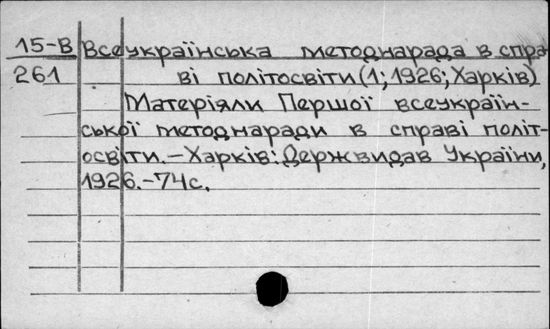 15-В Всеукраїнська методнарада в спра-
261 ві політосвіти (1; 1926; Харків)
Матеріяли Першої всеукраїн-
ської методнаради в справі політ-
освіти.-Харків: Держвидав України,
1926.-74с.